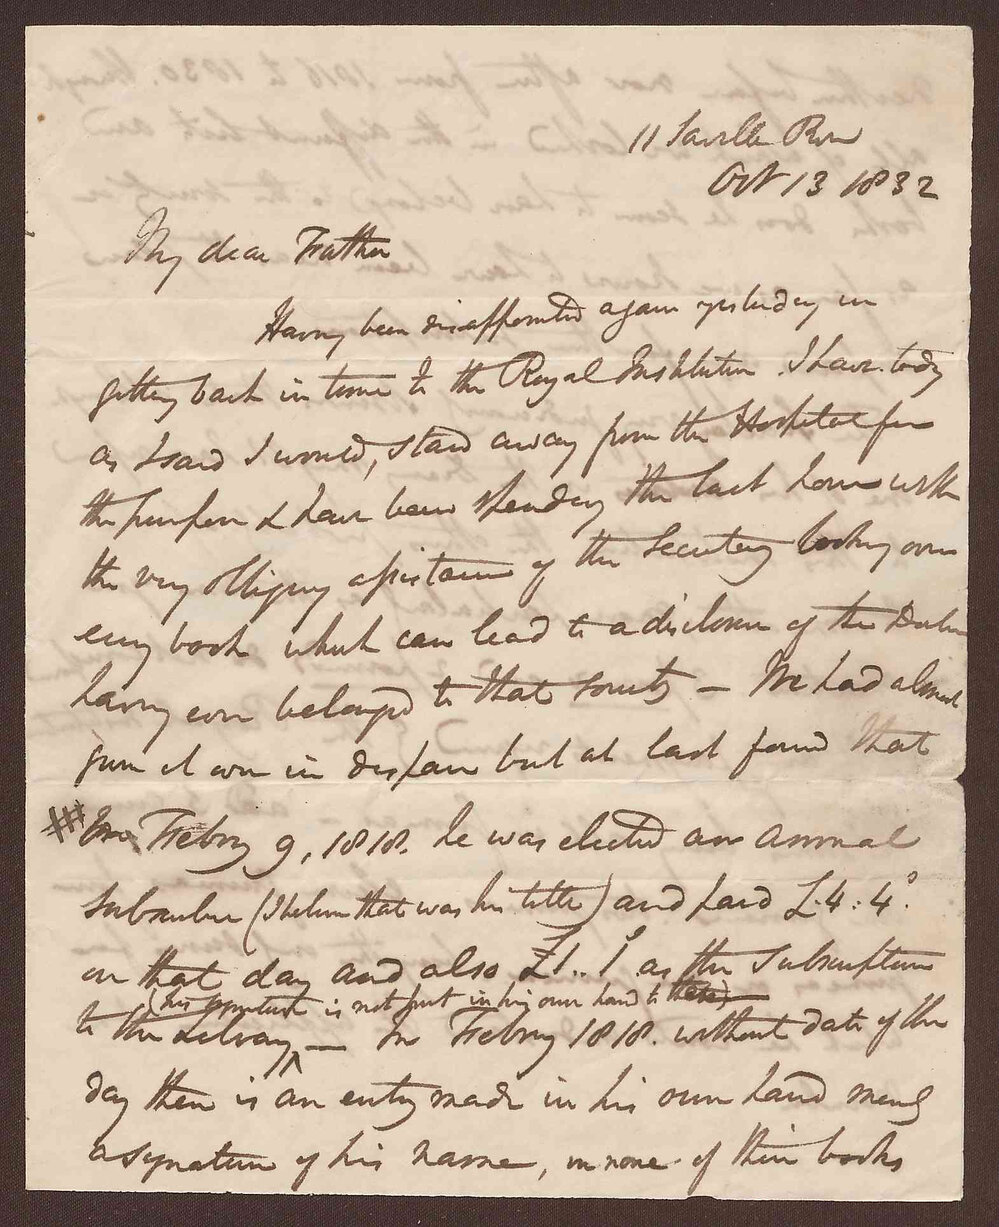 11 Saville Row
Oct 13 1832
My dear Father
Having been disappointed again yesterday in
getting back in time to the Royal Institution. I have today
as I said I would, stand away from the Hospital for
the purpose & have been spending the last hour with
the very obliging assistance of the Secretary looking over
every book which can lead to a disclosure of the
having ever belonged to that society – We had almost
given it over in despair but at last found that
Febry 9, 1818. he was elected an annual
subscriber (I believe that was his title) and paid £.4:4.o
on that day and also £1..1o as the subscription
(his signature is not put in his own hand to these)
to the Library – In Febry 1818. without date of the
day there is an entry made in his own hand
a signature of his name, in none of their books